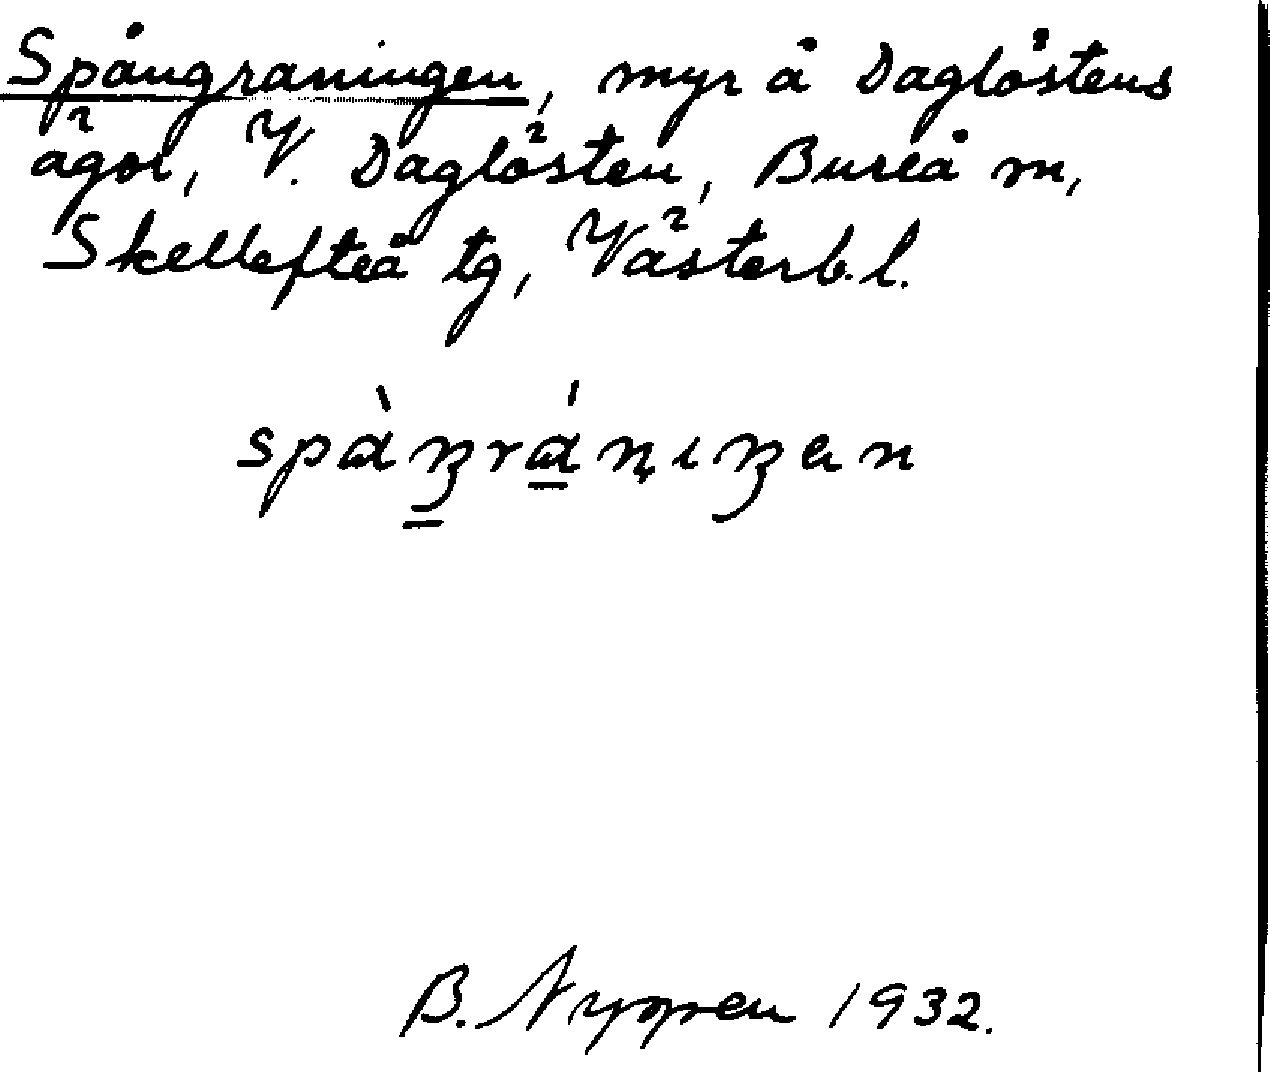 Spångraningen, myr å Daglöstens
ägor, V. Daglösten, Bureå m,
Skellefteå tg, Västerb.l.
B. Nygren 1932.